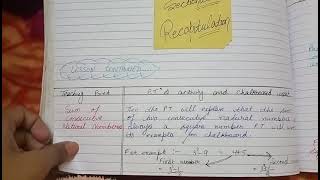 Section
Recapitulation
LESSON CONTINUED
Teaching Point
PT's activity and chalkboard work
Sum of
consecutive
Natural Numbers
The PT will explain that the sum
of two consecutive natural numbers
always a square number. PT will
examples on chalkboard
For example :- 3² = 9 = 4+5
First number
Second